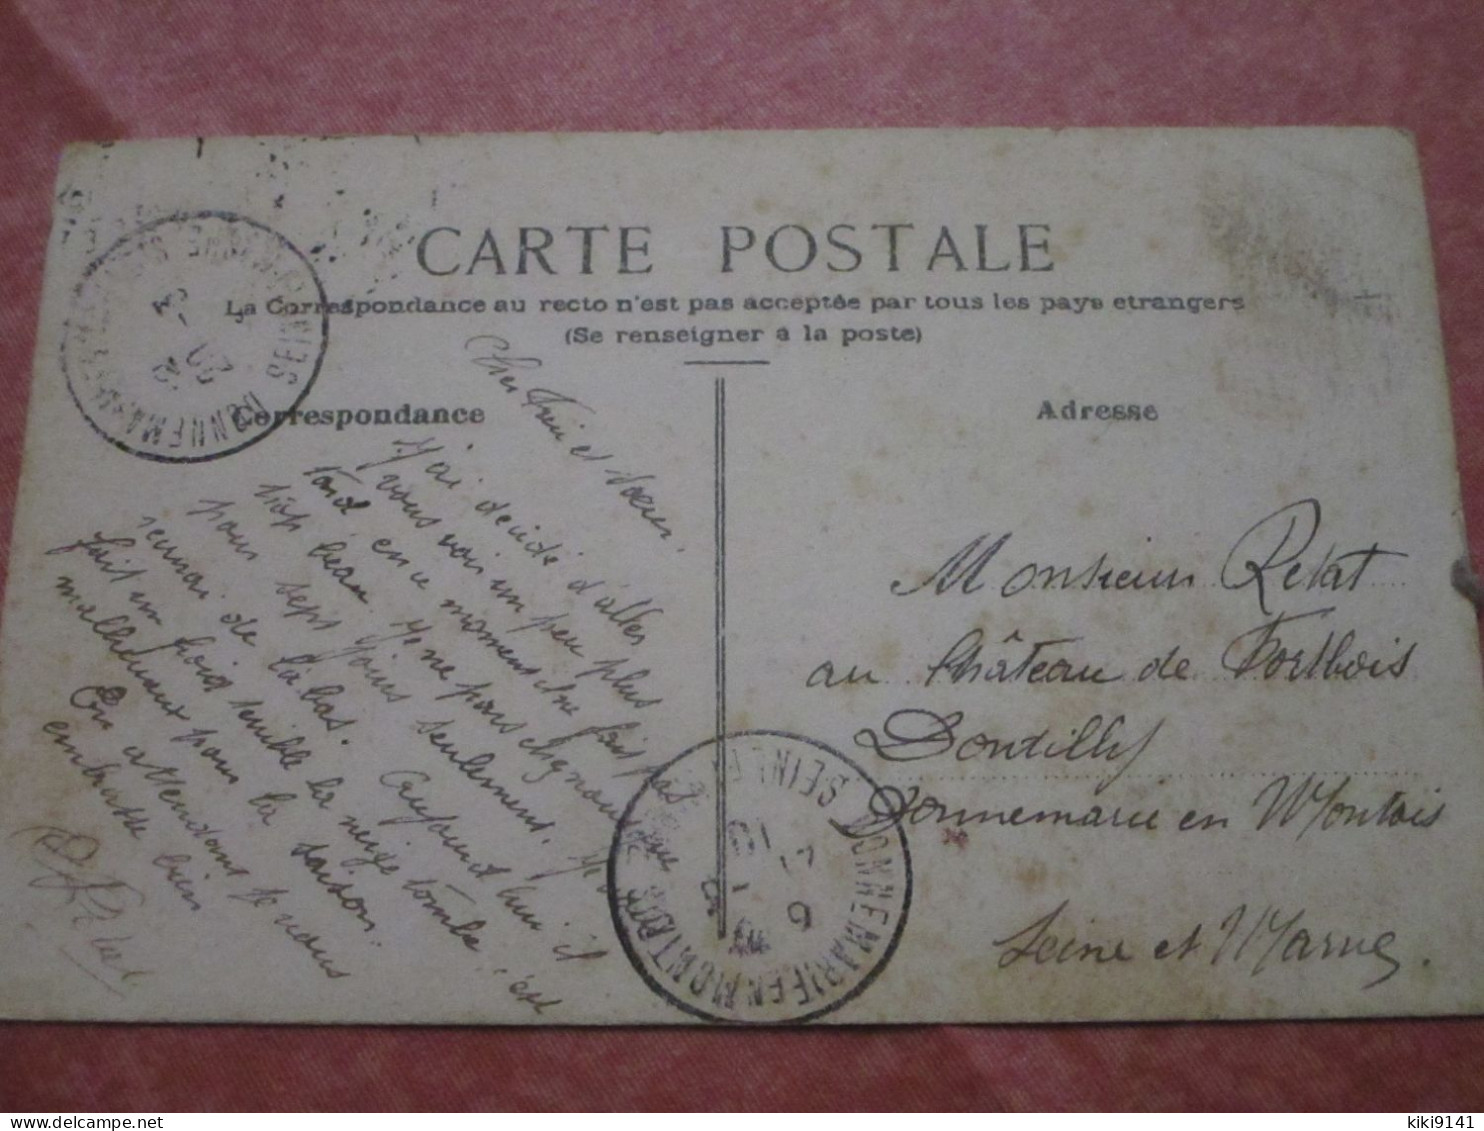 CARTE POSTALE
La Correspondance au recto n'est pas acceptée par tous les pays etrangers
(Se renseigner à la poste)
Correspondance
Adresse
Cher Frère et Soeur
J'ai décidé d'aller
vous voir un peu plus
tard en ce moment il ne fait pas
trop beau. Je ne pense
pour sept jours seulement. Je
de là bas. Aujourd'hui il
fait un froid terrible la neige tombe. c'est
malheureux pour la saison.
En attendant je vous
embrasse bien
Retat
Monsieur Retat
au Château de Fortbois
Dontilly
Donnemarie en Montois
Seine et Marne.
DONNEMARIE EN MONTOIS SEINE ET
DONNEMARIE SEINE
kiki9141